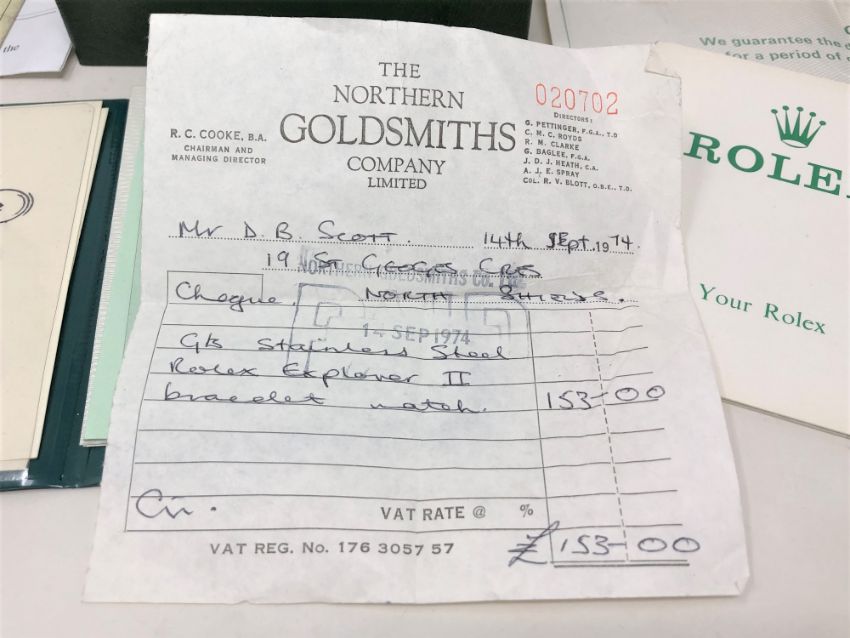 THE
NORTHERN
GOLDSMITHS
COMPANY
LIMITED
R. C. COOKE, B.A.
CHAIRMAN AND
MANAGING DIRECTOR
020702
DIRECTORS:
G. PETTINGER, F.G.A., T.D
C. M. C. ROYDS
R. M. CLARKE
G. BAGLEE, F.G.A.
J. D. J. HEATH, C.A.
A. J. E. SPRAY
COL. R. V. BLOTT, O.B.E., T.D.
Mr D. B. Scott. 14th Sept. 1974.
19 St Georges Cres
NORTHERN GOLDSMITHS CO.
Cheque NORTH SHIELDS.
PAID
14 SEP 1974
G/s Stainless Steel
Rolex Explorer II
bracelet watch. 153-00
VAT RATE @ %
VAT REG. No. 176 3057 57
£153-00
the
We guarantee the
for a period of
ROLE
Your Rolex